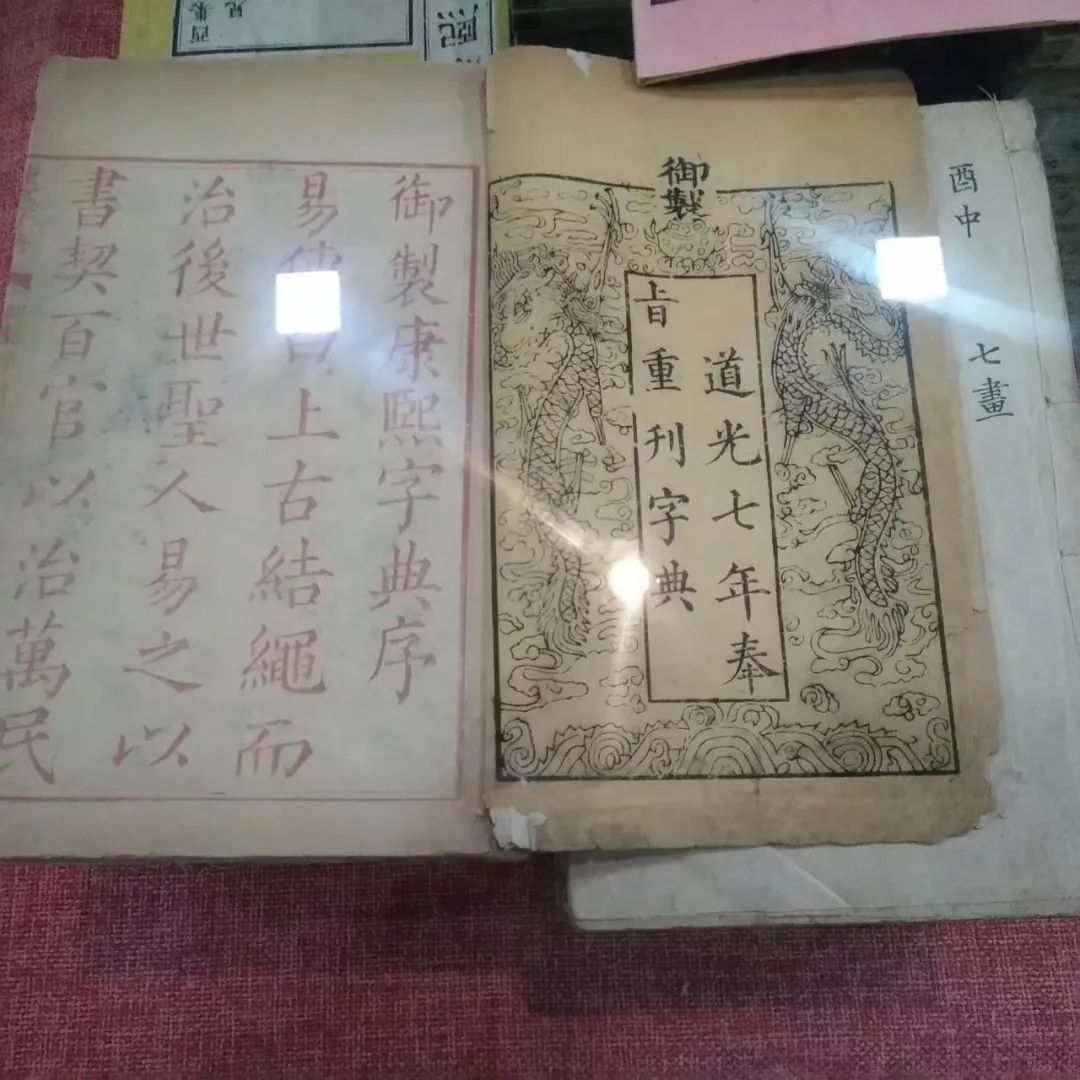 熙
見
酉集
酉中
七畫
御製
道光七年奉
㫖重刊字典
御製康熙字典序
易傳曰上古結繩而
治後世聖人易之以
書契百官以治萬民